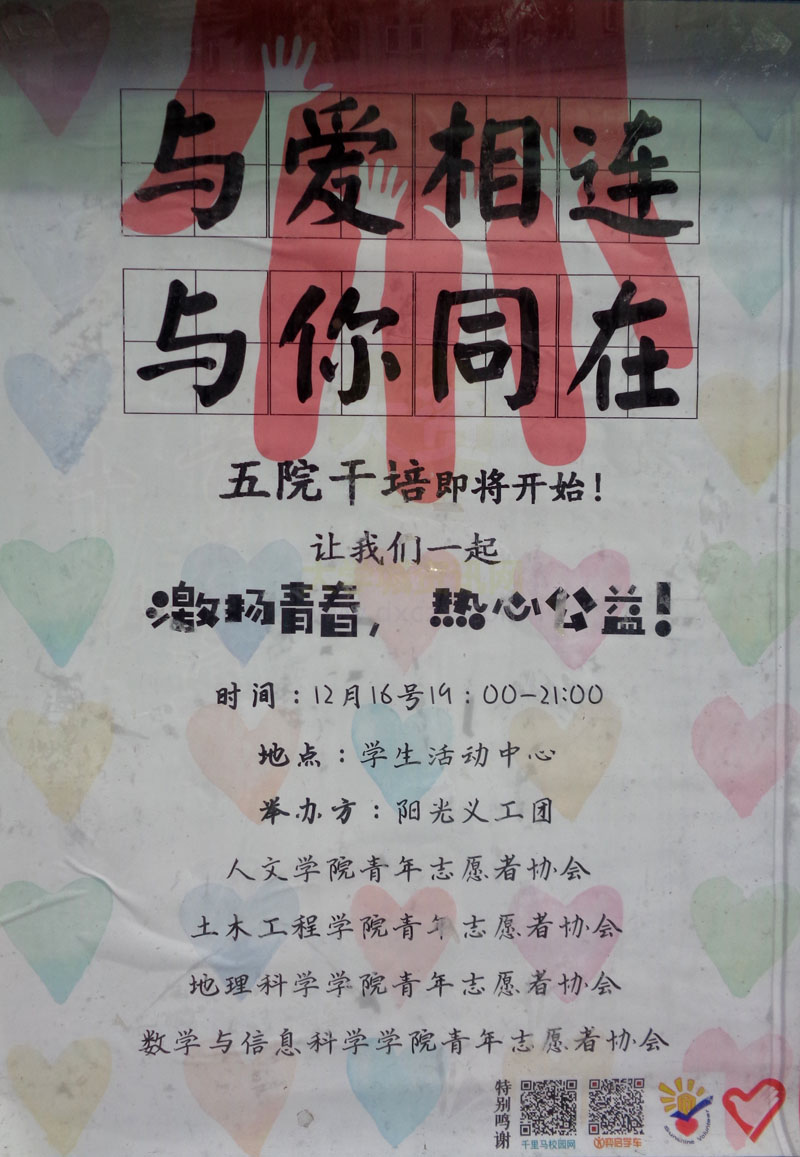 与爱相连
与你同在
五院干培即将开始！
让我们一起
激扬青春，热心公益！
时间：12月16号19：00-21:00
地点：学生活动中心
举办方：阳光义工团
人文学院青年志愿者协会
土木工程学院青年志愿者协会
地理科学学院青年志愿者协会
数学与信息科学学院青年志愿者协会
特别鸣谢
千里马校园网
Sunshine Volunteer